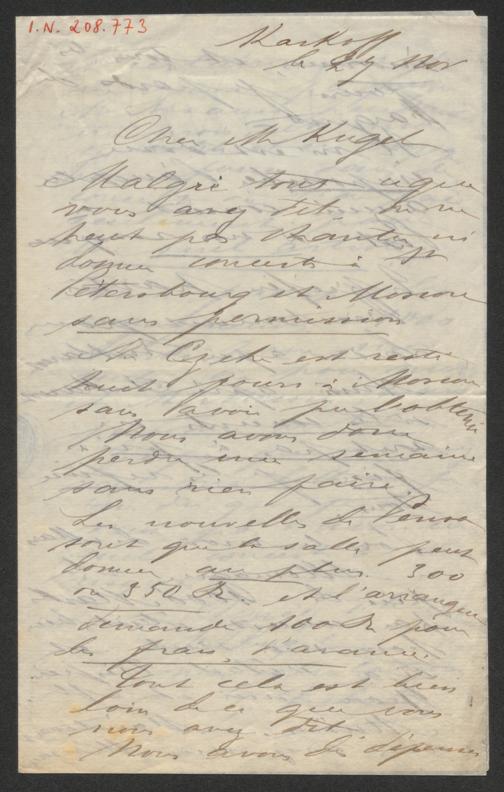 I.N. 208.773
Karkoff
le 27 Nov
Cher Mr Kugel
Malgré tout ce que
vous avez dit on ne
peut pas chanter ni
donner concerts à St
Pétersbourg et Moscou
sans permission
Mr est resté
huit jours à Moscou
sans avoir pu l'obtenir
Nous avons donc
perdu une semaine
sans rien faire.
Les nouvelles de Penza
sont que la salle peut
donner au plus 300
ou 350 R. et l'arrangeur
demande 100 R pour
les frais d'avance.
Tout cela est bien
loin de ce que vous
nous avez dit
Nous avons des dépenses